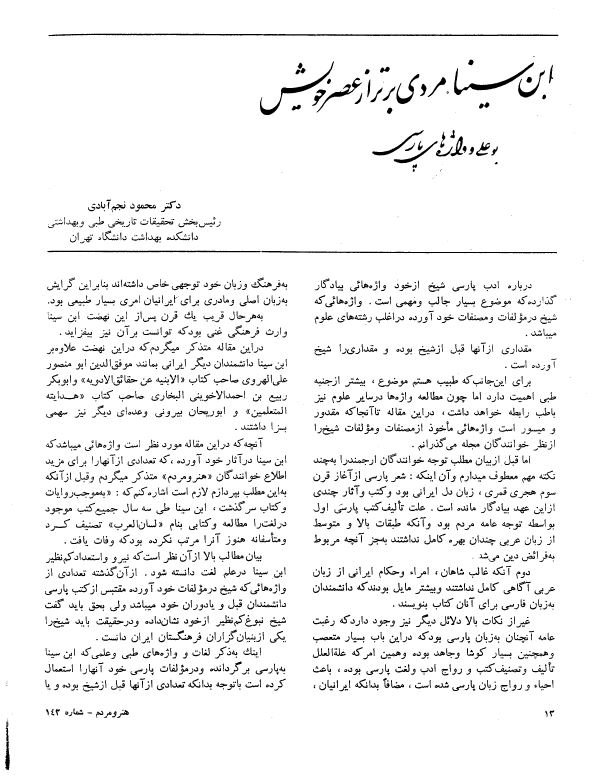 ابن سینا، مردی برتر از عصر خویش
بوعلی و واژه‌های پارسی
دکتر محمود نجم‌آبادی
رئیس بخش تحقیقات تاریخی طبی وبهداشتی
دانشکده بهداشت دانشگاه تهران
درباره ادب پارسی شیخ ازخود واژه‌هائی بیادگار
گذارده‌که موضوع بسیار جالب ومهمی است . واژه‌هائی‌که
شیخ درمؤلفات ومصنفات خود آورده دراغلب رشته‌های علوم
میباشد .
مقداری ازآنها قبل ازشیخ بوده و مقداری‌را شیخ
آورده است .
برای این‌جانب‌که طبیب هستم موضوع ، بیشتر ازجنبه
طبی اهمیت دارد اما چون مطالعه واژه‌ها درسایر علوم نیز
باطب رابطه خواهد داشت، دراین مقاله تاآنجاکه مقدور
و میسور است واژه‌هائی مأخوذ ازمصنفات ومؤلفات شیخ‌را
ازنظر خوانندگان مجله می‌گذرانم .
اما قبل ازبیان مطلب توجه خوانندگان ارجمندرا به‌چند
نکته مهم معطوف میدارم وآن اینکه : شعر پارسی ازآغاز قرن
سوم هجری قمری، زبان دل ایرانی بود وکتب وآثار چندی
ازاین عهد بیادگار مانده است . علت تألیف‌کتب پارسی اول
بواسطه توجه عامه مردم بود وآنکه طبقات بالا و متوسط
از زبان عربی چندان بهره کامل نداشتند به‌جز آنچه مربوط
به‌فرائض دین می‌شد .
دوم آنکه غالب شاهان، امراء وحکام ایرانی از زبان
عربی آگاهی کامل نداشتند وبیشتر مایل بودندکه دانشمندان
به‌زبان فارسی برای آنان کتاب بنویسند .
غیراز نکات بالا دلائل دیگر نیز وجود داردکه رغبت
عامه آنچنان به‌زبان پارسی بودکه دراین باب بسیار متعصب
وهمچنین بسیار کوشا وجاهد بوده وهمین امرکه علةالعلل
تألیف وتصنیف‌کتب و رواج ادب ولغت پارسی بوده ، باعث
احیاء و رواج زبان پارسی شده است ، مضافاً بدانکه ایرانیان ،
به‌فرهنگ وزبان خود توجهی خاص داشته‌اند بنابراین گرایش
به‌زبان اصلی ومادری برای ایرانیان امری بسیار طبیعی بود.
به‌هرحال قریب یك قرن پس‌از این نهضت ابن سینا
وارث فرهنگی غنی بودکه توانست برآن نیز بیفزاید .
دراین مقاله متذکر میگردم‌که دراین نهضت علاوه‌بر
ابن سینا دانشمندان دیگر ایرانی بمانند موفق‌الدین ابو منصور
علی‌الهروی صاحب کتاب «الابنیه عن حقائق‌الادویه» وابوبکر
ربیع بن احمدالاخوینی البخاری صاحب کتاب «هدایته
المتعلمین» و ابوریحان بیرونی وعده‌ای دیگر نیز سهمی
بسزا داشتند .
آنچه‌که دراین مقاله مورد نظر است واژه‌هائی میباشدکه
ابن سینا درآثار خود آورده ،که تعدادی ازآنهارا برای مزید
اطلاع خوانندگان «هنرومردم» متذکر میگردم وقبل ازآنکه
به‌این مطلب بپردازم لازم است اشاره‌کنم‌که : «به‌موجب‌روایات
وکتاب سرگذشت ، ابن سینا طی سه سال جمیع‌کتب موجود
درلغت‌را مطالعه وکتابی بنام «لسان‌العرب» تصنیف کرد
ومتأسفانه هنوز آنرا مرتب نکرده بودکه وفات یافت .
بیان مطالب بالا ازآن نظر است‌که نیرو واستعدادکم‌نظیر
ابن سینا درعلم لغت دانسته شود . ازآن‌گذشته تعدادی از
واژه‌هائی‌که شیخ درمؤلفات خود آورده مقتبس ازکتب پارسی
دانشمندان قبل و یادوران خود میباشد ولی بحق باید گفت
شیخ نبوغ‌کم‌نظیر ازخود نشان‌داده ودرحقیقت باید شیخ‌را
یکی ازبنیان‌گزاران فرهنگستان ایران دانست .
اینك به‌ذکر لغات و واژه‌های طبی وعلمی‌که ابن سینا
به‌پارسی برگردانده ودرمؤلفات پارسی خود آنهارا استعمال
کرده است باتوجه بدانکه تعدادی ازآنها قبل ازشیخ بوده و یا
۱۳
هنرومردم – شماره ۱۴۳